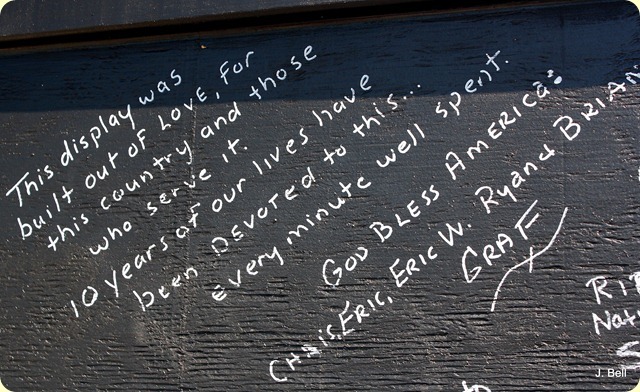 This display was
built out of LOVE, for
this country and those
who serve it.
10 years of our lives have
been DEVOTED to this...
every minute well spent.
GOD BLESS AMERICA
CHRIS, ERIC, ERIC W. RYAN & BRIAN
GRAF
J. Bell